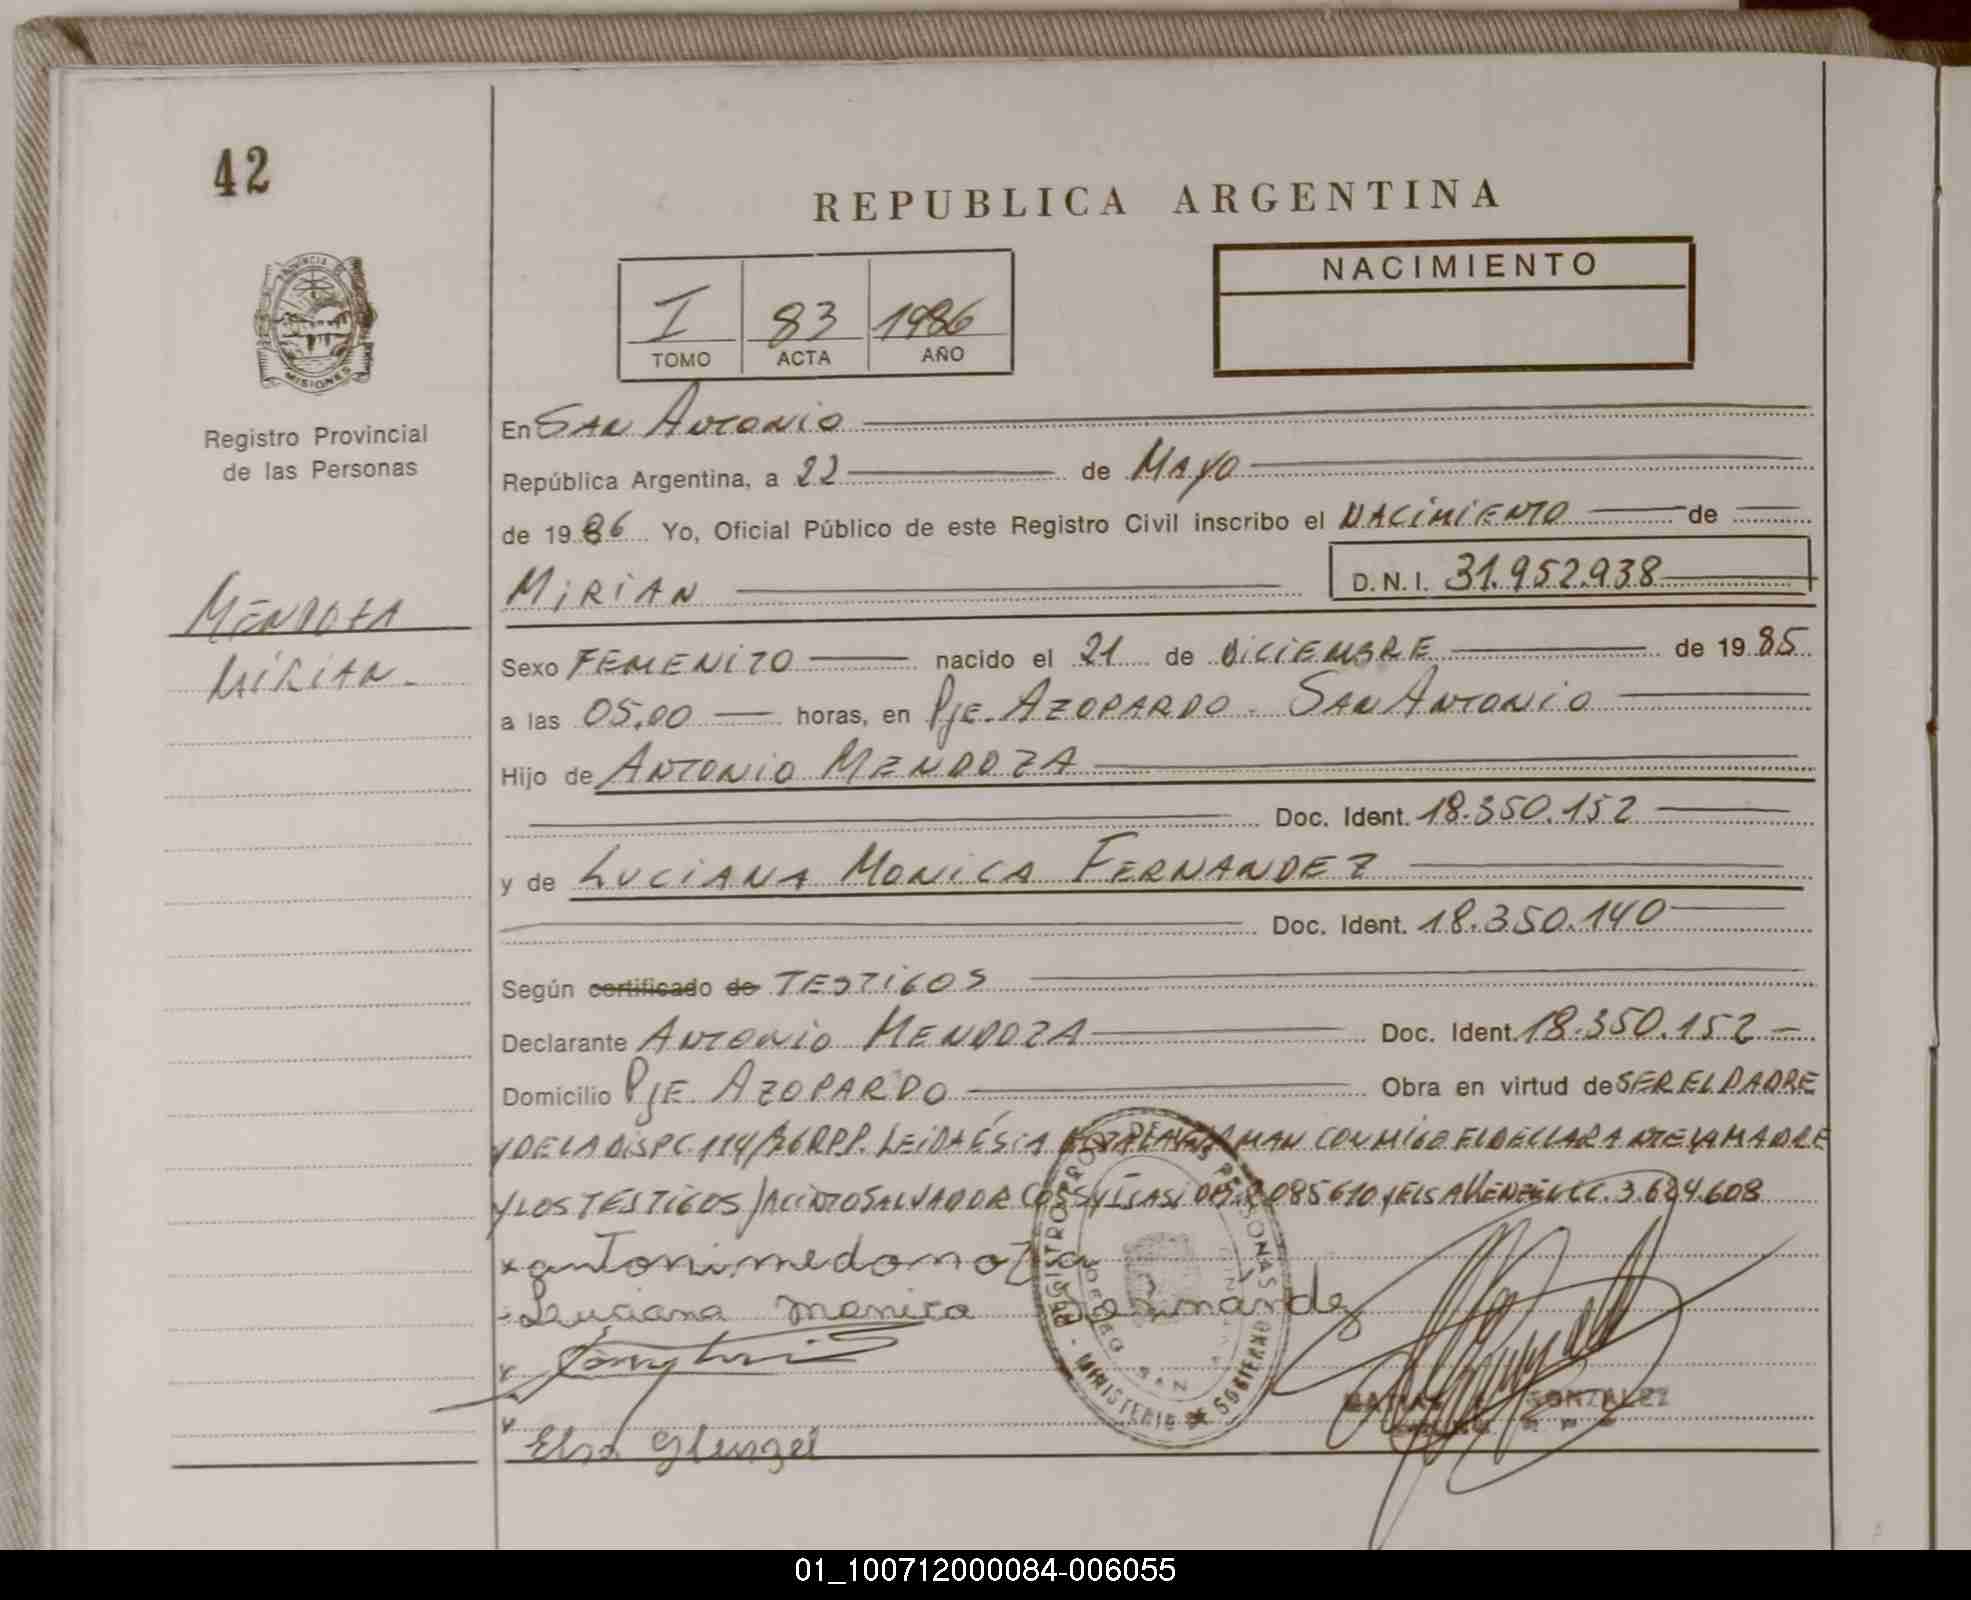 42
REPUBLICA ARGENTINA
NACIMIENTO
I 83 1986
TOMO ACTA AÑO
PROVINCIA DE
MISIONES
Registro Provincial
de las Personas
MENDOZA
MIRIAN.
En SAN ANTONIO
República Argentina, a 22 de MAYO
de 1986 Yo, Oficial Público de este Registro Civil inscribo el NACIMIENTO de
MIRIAN D.N.I. 31.952.938
Sexo FEMENINO nacido el 21 de DICIEMBRE de 1985
a las 05,00 horas, en Pje. AZOPARDO. SAN ANTONIO
Hijo de ANTONIO MENDOZA
Doc. Ident. 18.350.152
y de LUCIANA MONICA FERNANDEZ
Doc. Ident. 18.350.140
Según certificado de TESTIGOS
Declarante ANTONIO MENDOZA Doc. Ident. 18.350.152
Domicilio PJE. AZOPARDO Obra en virtud de SER EL PADRE
Y DE LA DISPC. 114/86 RPP. LEIDA ÉSTA MAN CONMIGO EL DECLARANTE LA MADRE
Y LOS TESTIGOS JACINTO SALVADOR 085610 Y ELSA 3.624.608
x antoni medono
Luciana monica Fernnandez
Elsa
REGISTRO PROV. DE LAS PERSONAS
MINISTERIO DE GOBIERNO
SAN
GONZALEZ
01_100712000084-006055